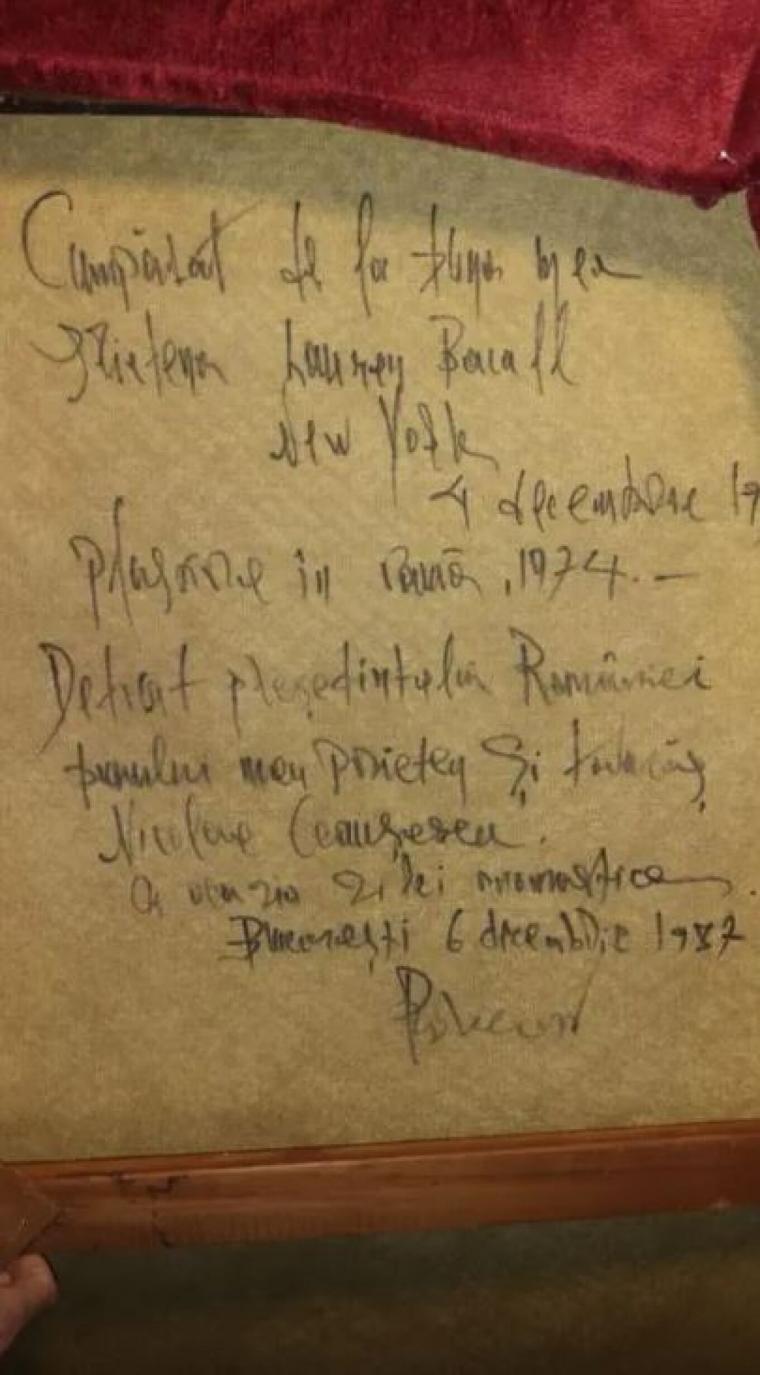 Cumpărat de la buna mea
prietena Lauren Bacall
New York
4 decembrie 19
in ramă, 1974. —
Deticat președintelui României
bunului meu prieten și
Nicolae Ceaușescu.
Cu ocazia zilei onomastice
București 6 decembrie 1987